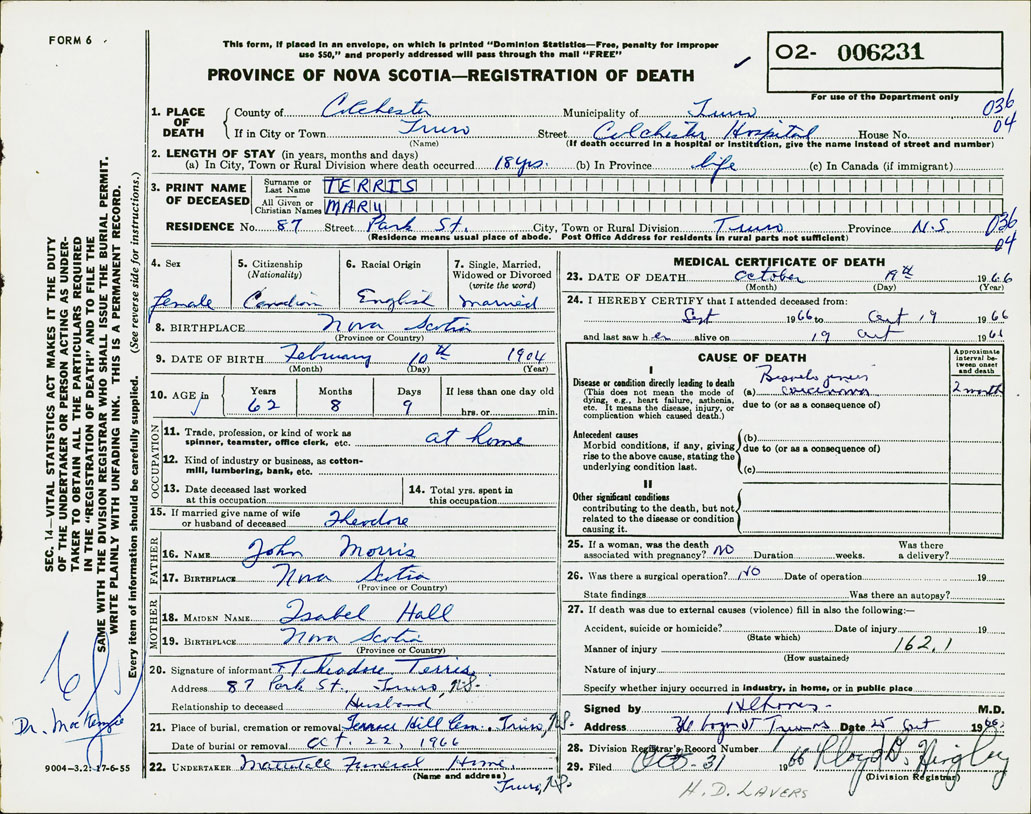 FORM 6
This form, if placed in an envelope, on which is printed "Dominion Statistics—Free, penalty for improper
use $50," and properly addressed will pass through the mail "FREE"
PROVINCE OF NOVA SCOTIA—REGISTRATION OF DEATH
02- 006231
For use of the Department only
036
04
1. PLACE OF DEATH County of Colchester Municipality of Truro
If in City or Town Truro Street Colchester Hospital House No.
(Name) (If death occurred in a hospital or institution, give the name instead of street and number)
2. LENGTH OF STAY (in years, months and days)
(a) In City, Town or Rural Division where death occurred 18 yrs. (b) In Province life (c) In Canada (if immigrant)
3. PRINT NAME OF DECEASED Surname or Last Name TERRIS
All Given or Christian Names MARY
RESIDENCE No. 87 Street Park St. City, Town or Rural Division Truro Province N.S.
(Residence means usual place of abode. Post Office Address for residents in rural parts not sufficient)
036
04
4. Sex
female
5. Citizenship
(Nationality)
Canadian
6. Racial Origin
English
7. Single, Married,
Widowed or Divorced
(write the word)
married
8. BIRTHPLACE Nova Scotia
(Province or Country)
9. DATE OF BIRTH February 10th 1904
(Month) (Day) (Year)
10. AGE in Years Months Days If less than one day old
62 8 9 hrs. or min.
OCCUPATION
11. Trade, profession, or kind of work as
spinner, teamster, office clerk, etc. at home
12. Kind of industry or business, as cotton-
mill, lumbering, bank, etc.
13. Date deceased last worked
at this occupation
14. Total yrs. spent in
this occupation
15. If married give name of wife
or husband of deceased Theodore
FATHER
16. NAME John Morris
17. BIRTHPLACE Nova Scotia
(Province or Country)
MOTHER
18. MAIDEN NAME Isabel Hall
19. BIRTHPLACE Nova Scotia
(Province or Country)
20. Signature of informant Theodore Terris
Address 87 Park St. Truro, N.S.
Relationship to deceased Husband
21. Place of burial, cremation or removal Hill Cem. Truro, N.S.
Date of burial or removal Oct. 22, 1966
22. UNDERTAKER Funeral Home
(Name and address)
Truro, N.S.
MEDICAL CERTIFICATE OF DEATH
23. DATE OF DEATH October 19th 1966
(Month) (Day) (Year)
24. I HEREBY CERTIFY that I attended deceased from:
Sept 1966 to Oct 19 1966
and last saw her alive on 19 Oct 1966
CAUSE OF DEATH
Approximate interval between onset and death
I
Disease or condition directly leading to death
(This does not mean the mode of
dying, e.g., heart failure, asthenia,
etc. It means the disease, injury, or
complication which caused death.)
(a) carcinoma 2 month
due to (or as a consequence of)
Antecedent causes
Morbid conditions, if any, giving
rise to the above cause, stating the
underlying condition last.
(b)
due to (or as a consequence of)
(c)
II
Other significant conditions
contributing to the death, but not
related to the disease or condition
causing it.
25. If a woman, was the death
associated with pregnancy? NO Duration weeks. Was there
a delivery?
26. Was there a surgical operation? NO Date of operation 19
State findings Was there an autopsy?
27. If death was due to external causes (violence) fill in also the following:—
Accident, suicide or homicide? Date of injury 19
(State which)
Manner of injury 162.1
(How sustained)
Nature of injury
Specify whether injury occurred in industry, in home, or in public place
Signed by M.D.
Address Date 25 Oct 1966
28. Division Registrar's Record Number
29. Filed Oct-31 1966 Lloyd D.
(Division Registrar)
H. D. LAVERS
SEC. 14—VITAL STATISTICS ACT MAKES IT THE DUTY
OF THE UNDERTAKER OR PERSON ACTING AS UNDER-
TAKER TO OBTAIN ALL THE PARTICULARS REQUIRED
IN THE "REGISTRATION OF DEATH" AND TO FILE THE
SAME WITH THE DIVISION REGISTRAR WHO SHALL ISSUE THE BURIAL PERMIT.
WRITE PLAINLY WITH UNFADING INK. THIS IS A PERMANENT RECORD.
Every item of information should be carefully supplied. (See reverse side for instructions.)
Dr. MacKenzie
9004—3.2: 17-6-55